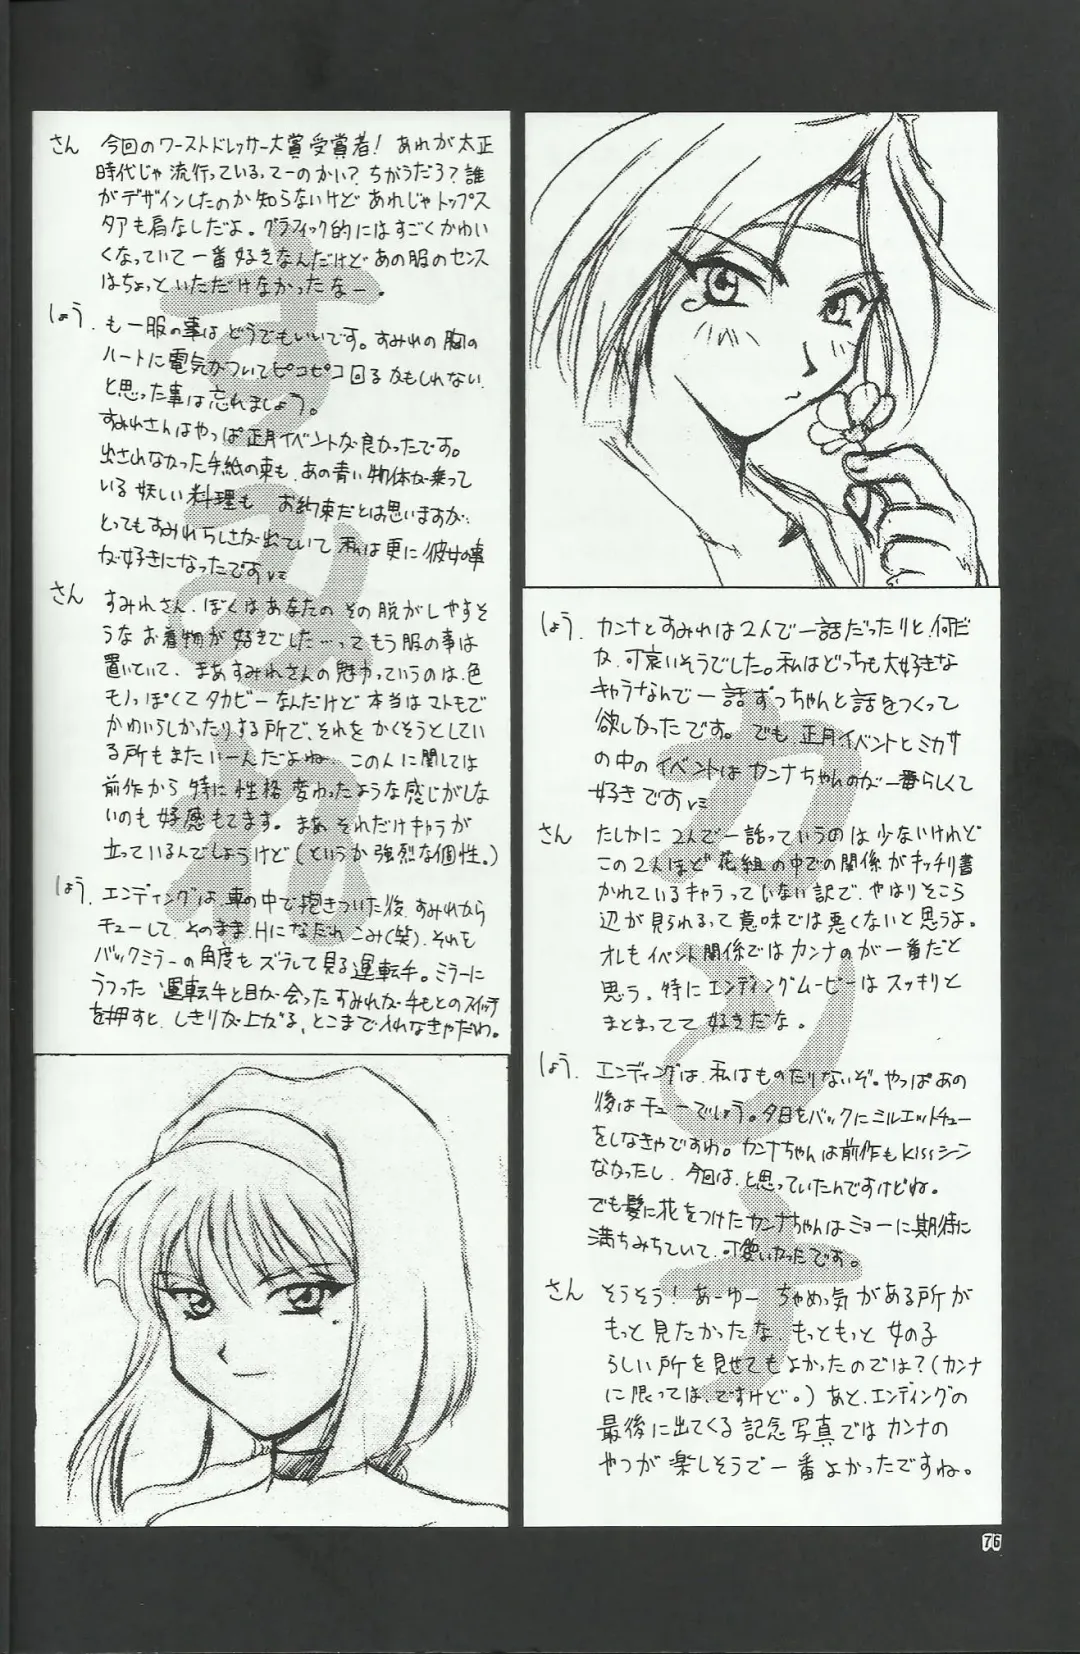 さん 今回のワーストドレッサー大賞受賞者! あれが太正
時代じゃ流行っているってーのかい? ちがうだろ? 誰
がデザインしたのか知らないけど あれじゃトップス
タアも肩なしだよ。グラフィック的にはすごくかわい
くなっていて一番好きなんだけどあの服のセンス
はちょっといただけなかったなー。
しょう. も一服の事はどうでもいいです。すみれの胸の
ハートに電気がついてピコピコ回るかもしれない.
と思った事は忘れましょう。
すみれさんはやっぱ正月イベントが良かったです。
出されなかった手紙の束も、あの青い物体が乗って
いる妖しい料理も お約束だとは思いますが、
とってもすみれらしさが出ていて 私は更に彼女の事
が好きになったです
さん すみれさん、ぼくはあなたの その脱がしやすそ
うな お着物が 好きでした…ってもう服の事は
置いていて、まあすみれさんの魅力っていうのは、色
モノっぽくてタカビーなんだけど本当はマトモで
かわいらしかったりする所で、それをかくそうとしてい
る所もまたいーんだよね. この人に関しては
前作から特に性格変わったような感じがしな
いのも好感もてます。まあ それだけキャラが
立っているんでしょうけど(というか強烈な個性。)
しょう. エンディングは、車の中で抱きついた後、すみれから
チューして、そのまま.Hになだれこみ(笑). それを
バックミラーの角度をズラして見る運転手。ミラーに
うつった 運転手と目が会ったすみれが手もとのスイッチ
を押すと、しきりが上がる、とこまで入れなきゃだわ。
しょう. カンナとすみれは2人で一話だったりと、何だ
か、可哀いそうでした。私はどっちも大好きな
キャラなんで一話ずっちゃんと話をつくって
欲しかったです。でも 正月イベントとミカサ
の中のイベントはカンナちゃんのが一番らしくて
好きです
さん たしかに2人で一話っていうのは少ないけれど
この2人ほど花組の中での関係がキッチリ書
かれているキャラっていない訳で、やはりそこら
辺が見られるって意味では悪くないと思うよ。
オレもイベント関係ではカンナのが一番だと
思う。特にエンディングムービーはスッキリと
まとまってて 好きだな。
しょう. エンディングは、私はものたりないぞ。やっぱあの
後はチューでしょう。夕日をバックにミルエットチュー
をしなきゃですわ。カンナちゃんは前作もkissシーン
なかったし、今回は、と思っていたんですけどね。
でも髪に花をつけたカンナちゃんはミョーに期待に
満ちみちていて、可愛いかったです。
さん そうそう! あーゆー ちゃめっ気がある所が
もっと見たかったな、もっともっと 女の子
らしい所を見せてもよかったのでは?(カンナ
に限っては、ですけど。) あと、エンディングの
最後に出てくる記念写真ではカンナの
やつが楽しそうで一番よかったですね。
すみれ
カンナ
76